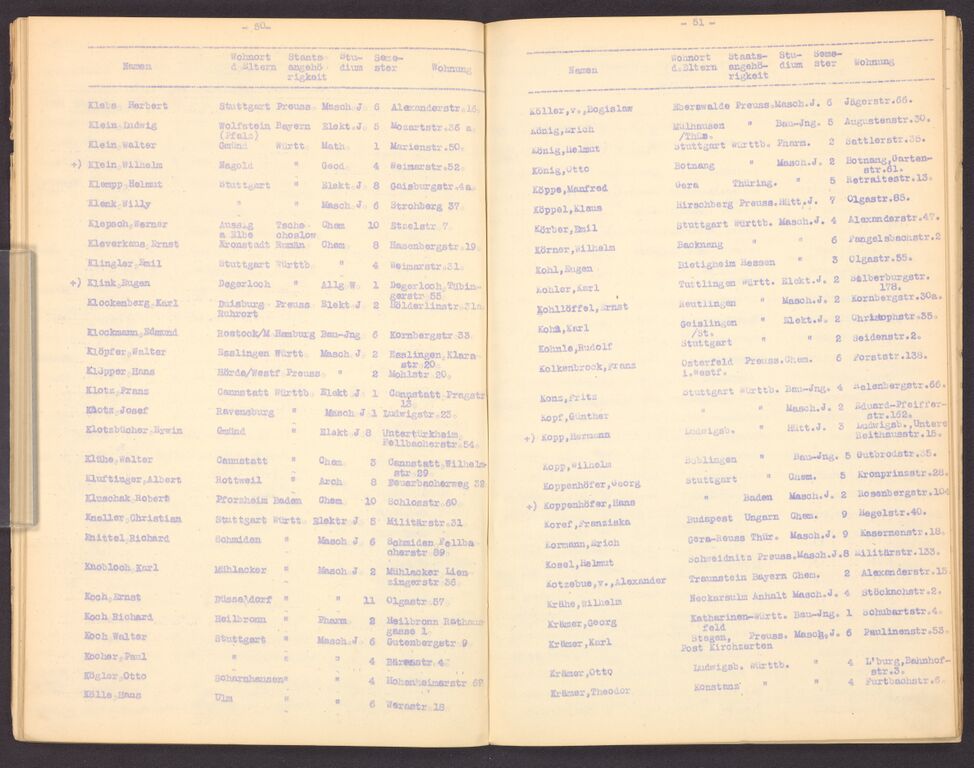 - 50 -
Namen Wohnort d.Eltern Staats angehö rigkeit Stu- dium Seme- ster Wohnung
Klebs Herbert Stuttgart Preuss Masch.J 6 Alexanderstr.16
Klein Ludwig Wolfstein Bayern Elekt.J 5 Mozartstr.36 a
(Pfalz)
Klein Walter Gmünd Württ Math 1 Marienstr.50
+) Klein Wilhelm Nagold " Geod 4 Weimarstr.52
Klempp Helmut Stuttgart " Elekt J 8 Gaisburgstr.4a
Klenk Willy " " Masch J 6 Strohberg 37
Klepsch Werner Aussig Tsche- Chem 10 Etzelstr 7
a Elbe choslow
Kleverkaus Ernst Kronstadt Rumän Chem 8 Hasenbergstr 19
Klingler Emil Stuttgart Württb " 4 Weimarstr 31
+) Klink Eugen Degerloch " Allg W 1 Degerloch Tübin-
gerstr 55
Klockenberg Karl Duisburg Preuss Elekt J 2 Hölderlinstr 31a
Ruhrort
Klockmann Edmund Rostock/M Hamburg Bau-Jng 6 Kornbergstr 33
Klöpfer Walter Esslingen Württ Masch J 2 Esslingen Klara-
str 20
Klöpper Hans Hörde/Westf Preuss " 2 Mohlstr 20
Klotz Franz Cannstatt Württb Elekt J 1 Cannstatt Pragstr
13
Klotz Josef Ravensburg " Masch J 1 Ludwigstr 23
Klotzbücher Erwin Gmünd " Elekt J 8 Untertürkheim
Fellbacherstr 54
Klühe Walter Cannstatt " Chem 3 Cannstatt Wilhelm-
str 29
Kluftinger Albert Rottweil " Arch 8 Feuerbacherweg 32
Kluschak Robert Pforzheim Baden Chem 10 Schlosstr 60
Kneller Christian Stuttgart Württ Elektr J 5 Militärstr 31
Knittel Richard Schmiden " Masch J 6 Schmiden Fellba-
cherstr 89
Knobloch Karl Mühlacker " Masch J 2 Mühlacker Lien-
zingerstr 36
Koch Ernst Düsseldorf " " 11 Olgastr 57
Koch Richard Heilbronn " Pharm 2 Heilbronn Rathaus-
gasse 1
Koch Walter Stuttgart " Masch J 6 Gutenbergstr 9
Kocher Paul " " " 4 Bärenstr 4
Kögler Otto Scharnhausen " " 4 Hohenheimerstr 62
Kölle Hans Ulm " " 6 Werastr 18
- 51 -
Namen Wohnort d.Eltern Staats- angehö- rigkeit Stu- dium Seme- ster Wohnung
Köller,v.,Bogislaw Eberswalde Preuss.Masch.J. 6 Jägerstr.66.
König,Erich Mülhausen " Bau-Jng. 5 Augustenstr.30.
/Thür.
König,Helmut Stuttgart Württb. Pharm. 2 Sattlerstr.35.
König,Otto Botnang " Masch.J. 2 Botnang,Garten-
str.61.
Köppe,Manfred Gera Thüring. " 5 Retraitestr.13.
Köppel,Klaus Hirschberg Preuss.Hütt.J. 7 Olgastr.85.
Körber,Emil Stuttgart Württb. Masch.J. 4 Alexanderstr.47.
Körner,Wilhelm Backnang " " 6 Fangelsbachstr.2
Kohl,Eugen Bietigheim Hessen " 3 Olgastr.55.
Kohler,Karl Tuttlingen Württ. Elekt.J. 2 Silberburgstr.
178.
Kohllöffel,Ernst Reutlingen " Masch.J. 2 Kornbergstr.30a.
Kohn,Karl Geislingen " Elekt.J. 2 Christophstr.35.
/St.
Kohnle,Rudolf Stuttgart " " 2 Seidenstr.2.
Kolkenbrock,Franz Osterfeld Preuss.Chem. 6 Forststr.138.
i.Westf.
Konz,Fritz Stuttgart Württb. Bau-Jng. 4 Relenbergstr.66.
Kopf,Günther " " Masch.J. 2 Eduard-Pfeiffer-
str.152.
+) Kopp,Hermann Ludwigsb. " Hütt.J. 3 Ludwigsb.,Untere
Reithausstr.15.
Kopp,Wilhelm Böblingen " Bau-Jng. 5 Gutbrodstr.35.
Koppenhöfer,Georg Stuttgart " Chem. 5 Kronprinzstr.28.
+) Koppenhöfer,Hans " Baden Masch.J. 2 Rosenbergstr.104
Koref,Franziska Budapest Ungarn Chem. 9 Hegelstr.40.
Kormann,Erich Gera-Reuss Thür. Masch.J. 9 Kasernenstr.18.
Kosel,Helmut Schweidnitz Preuss.Masch.J.8 Militärstr.133.
Kotzebue,v.,Alexander Traunstein Bayern Chem. 2 Alexanderstr.15
Krähe,Wilhelm Neckarsulm Anhalt Masch.J. 4 Stöcknochstr.2.
Krämer,Georg Katharinen-Württ. Bau-Jng. 1 Schubartstr.4.
feld
Krämer,Karl Stegen, Preuss. Masch.J. 6 Paulinenstr.53.
Post Kirchzarten
Krämer,Otto Ludwigsb. Württb. " 4 L'burg,Bahnhof-
str.3.
Krämer,Theodor Konstanz " " 4 Furtbachstr.6.